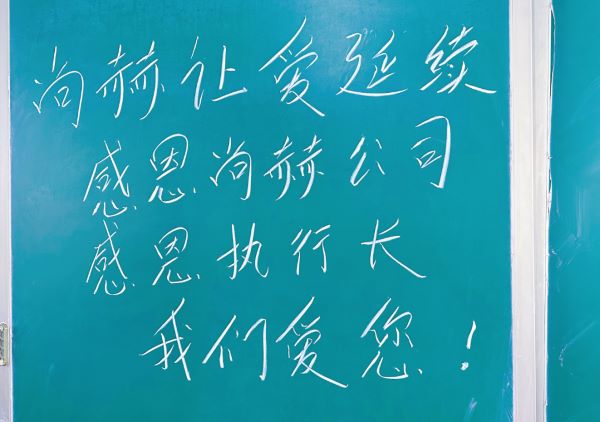 尚赫让爱延续
感恩尚赫公司
感恩执行长
我们爱您！